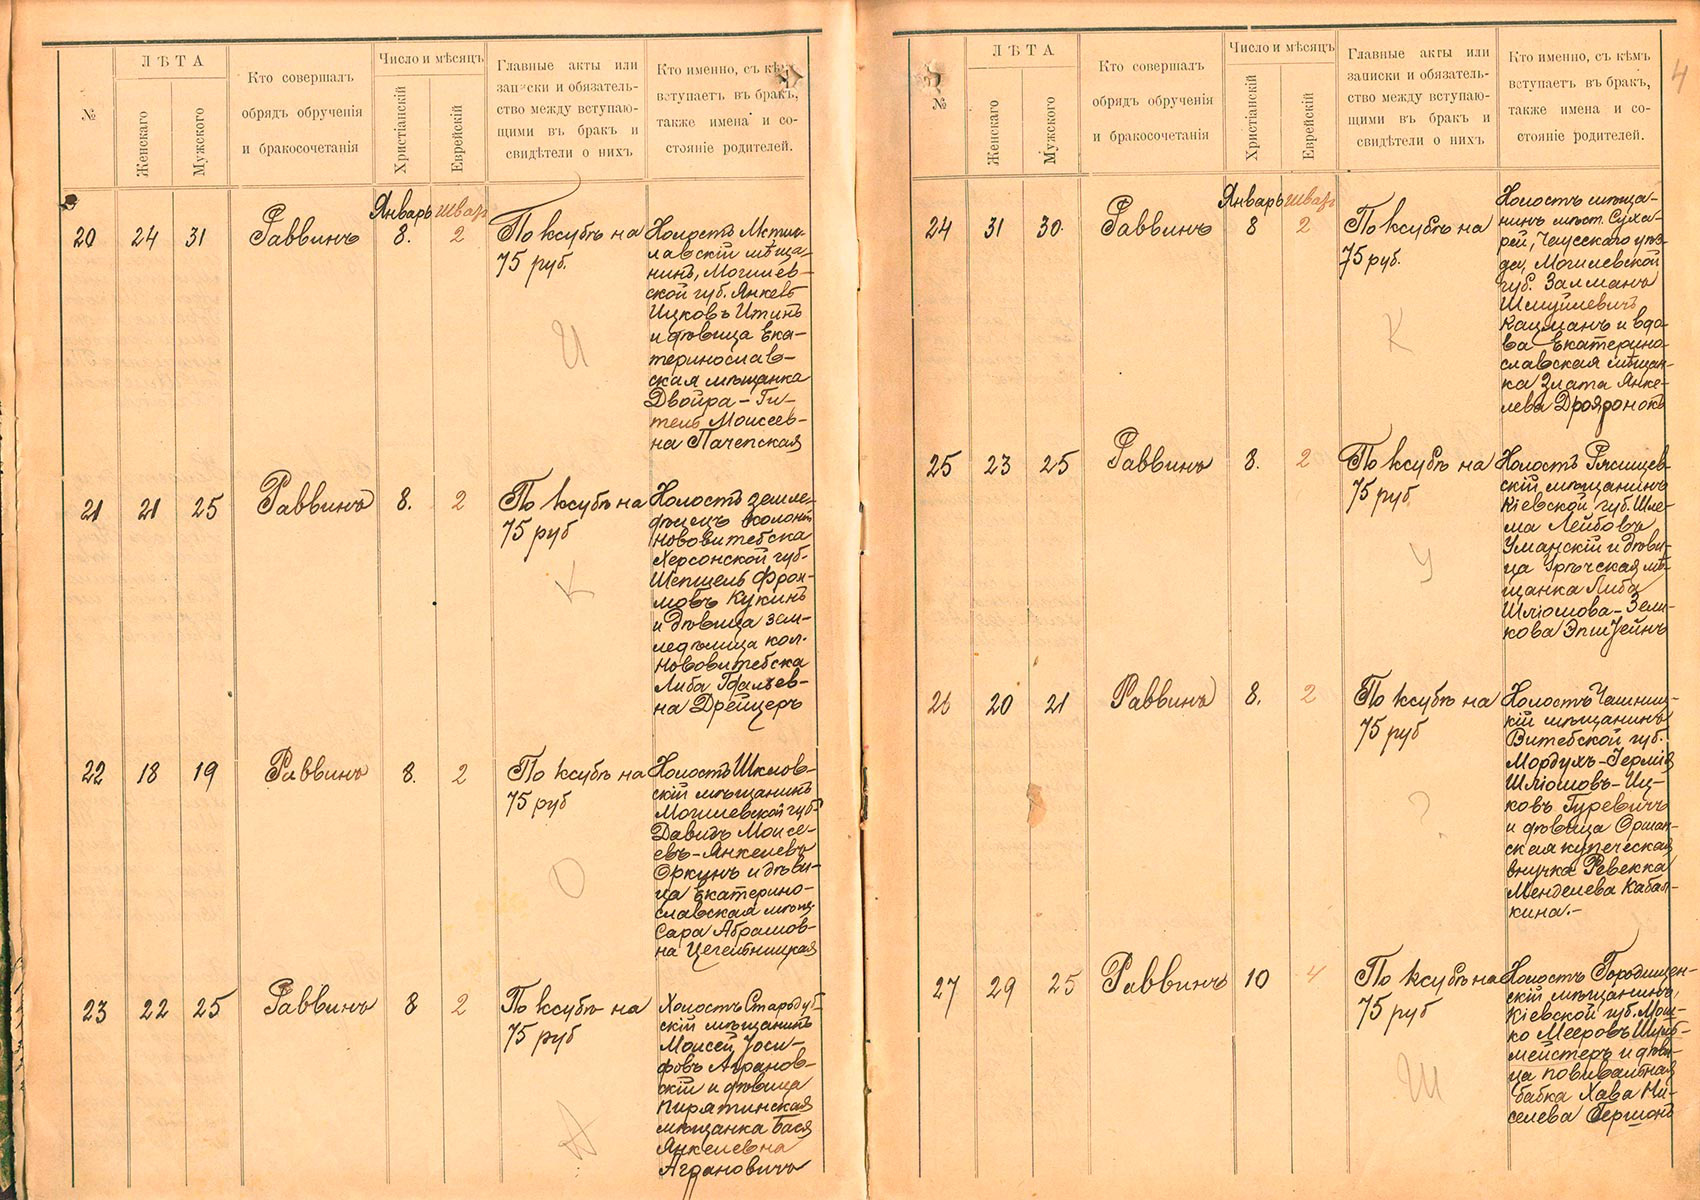 №
ЛѢТА
Женскаго
Мужского
Кто совершалъ
обрядъ обрученія
и бракосочетанія
Число и мѣсяцъ
Христіанскій
Еврейскій
Главные акты или
записки и обязатель-
ство между вступаю-
щими въ бракъ и
свидѣтели о нихъ
Кто именно, съ кѣмъ
вступаетъ въ бракъ,
также имена и со-
стояніе родителей.
Январь Шват
20 24 31 Раввинъ 8. 2
По ксубѣ на
75 руб.
И
Холостъ Мстис-
лавскій мѣща-
нинъ, Могилев-
ской губ. Янкевъ
Ицковъ Итинъ
и дѣвица Ека-
теринослав-
ская мѣщанка
Двойра-Ги-
тель Моисеев-
на Пачепская
21 21 25 Раввинъ 8. 2
По ксубѣ на
75 руб
К
Холостъ земле-
дѣлецъ колоніи
Нововитебска
Херсонской губ.
Шепшель Фрои-
мовъ Кукинъ
и дѣвица зем-
ледѣлица кол.
Нововитебска
Либа
на Дрейцеръ
22 18 19 Раввинъ 8. 2
По ксубѣ на
75 руб
О
Холостъ Шклов-
скій мѣщанинъ
Могилевской губ
Давидъ Моисе-
евъ-Янкелевъ
Оркунъ и дѣви-
ца Екатерино-
славская мѣщ
Сара Абрамов-
на Цегельницкая
23 22 25 Раввинъ 8 2
По ксубѣ на
75 руб
А
Холостъ Стародуб-
скій мѣщанинъ
Моисей Іоси-
фовъ Агранов-
скій и дѣвица
Пирятинская
мѣщанка Бася
Янкелевна
Аграновичъ
4
№
ЛѢТА
Женскаго
Мужского
Кто совершалъ
обрядъ обрученія
и бракосочетанія
Число и мѣсяцъ
Христіанскій
Еврейскій
Главные акты или
записки и обязатель-
ство между вступаю-
щими въ бракъ и
свидѣтели о нихъ
Кто именно, съ кѣмъ
вступаетъ въ бракъ,
также имена и со-
стояніе родителей.
Январь Шват
24 31 30 Раввинъ 8 2
По ксубѣ на
75 руб.
К
Холостъ мѣща-
нинъ мѣст. Суха-
рей, Чаусскаго уѣз-
да, Могилевской
губ. Залманъ
Шмуйлевичъ
Кацманъ и вдо-
ва Екатерино-
славская мѣщан-
ка Злата Янке-
лева
25 23 25 Раввинъ 8. 2
По ксубѣ на
75 руб
У
Холостъ Ржищев-
скій мѣщанинъ
Кіевской губ. Шле-
ма Лейбовъ
Уманскій и дѣви-
ца мѣ-
щанка Либа
Шліомова-Зели-
кова Эпштейнъ
26 20 21 Раввинъ 8. 2
По ксубѣ на
75 руб
?
Холостъ Чашниц-
кій мѣщанинъ
Витебской губ.
Мордухъ-Іермія
Шліомовъ-Иц-
ковъ Гуревичъ
и дѣвица Оршан-
ская купеческая
внучка Ревекка
Менделева Кабал-
кина.-
27 29 25 Раввинъ 10 4
По ксубѣ на
75 руб
Ш
Холостъ Городищен-
скій мѣщанинъ,
Кіевской губ. Мош-
ко Мееровъ Шульб-
мейстеръ и дѣви-
ца повивальная
бабка Хава Ни-
селева